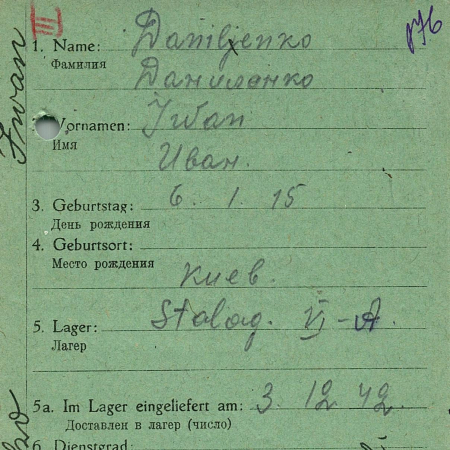 III
876
1. Name: Daniljenko
Фамилия Даниленко
Vornamen: Iwan
Имя Иван.
Iwan
3. Geburtstag: 6. 1. 15
День рождения
4. Geburtsort:
Место рождения Киев.
5. Lager: Stalag. VI-A.
Лагер
5a. Im Lager eingeliefert am: 3. 12. 42.
Доставлен в лагер (число)
6. Dienstgrad: